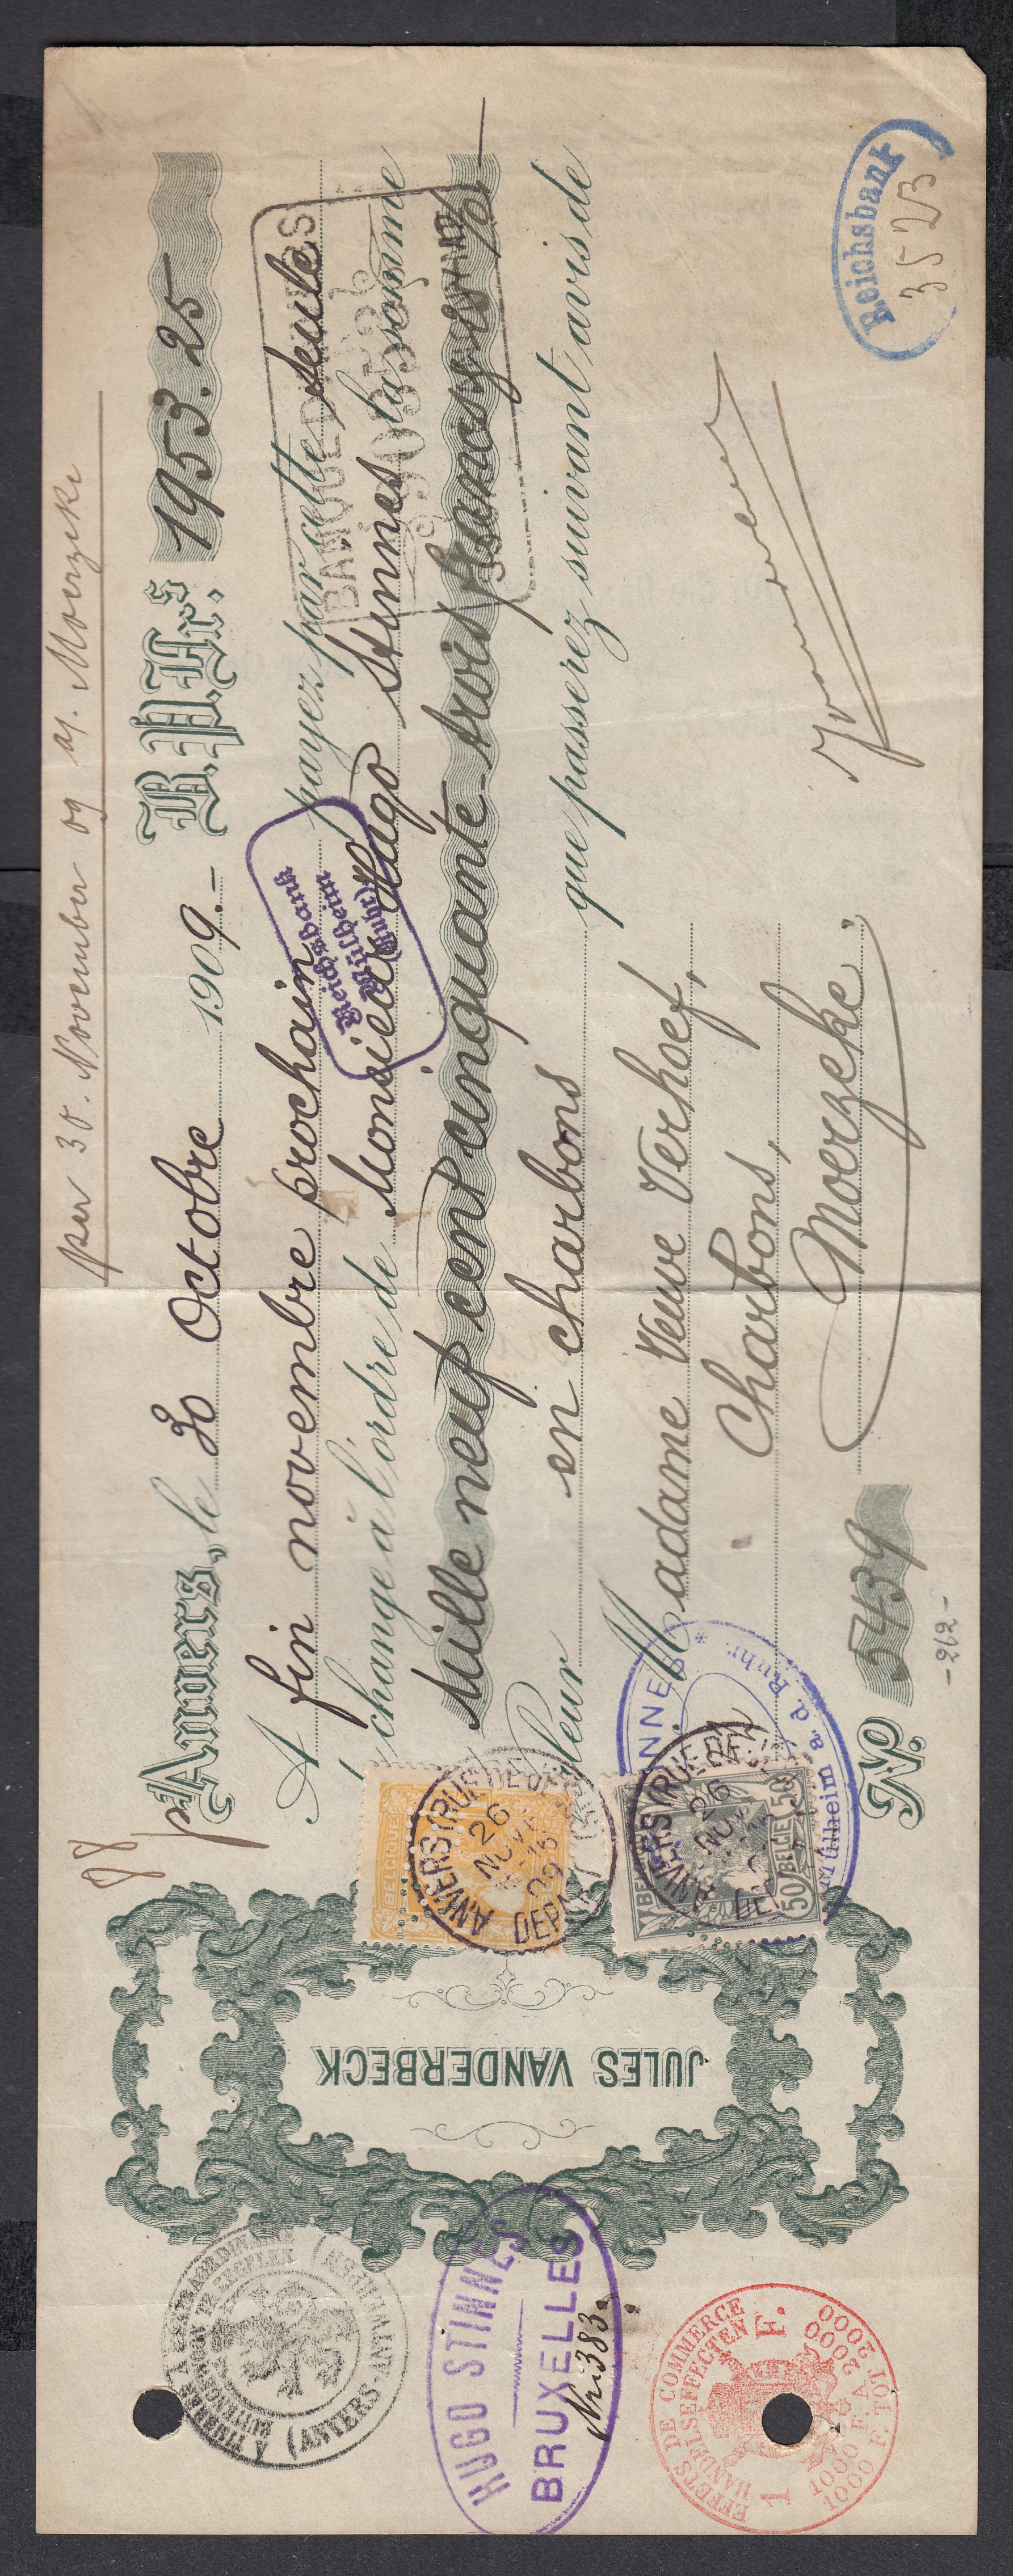 per 30. November 09 a/. Moerzeke
Anvers, le 30 Octobre 1909.- B.P.Fr.s 1953.25
A fin novembre prochain payez par cette seule
change à l'ordre de Monsieur Hugo Stinnes la somme
Mille neuf cent cinquante-trois francs 25%
en charbons que passerez suivant avis de
Madame Veuve Verhoef,
Charbons,
Moerzeke.
No. 5439
-262-
JULES VANDERBECK
Reichsbank
Mülheim
(Ruhr)
Reichsbank
3523
BELGIQUE
ANVERS (RUE DE
26
NOV
09
DEPART
50 BELGIE 50
ANVERS (RUE DE
26
NOV
Mülheim a. d. Ruhr.
HUGO STINNES
BRUXELLES
Nr. 383.
(ANVERS-ANTWERPEN)
EFFETS DE COMMERCE
HANDELSEFFECTEN
1 F.
1000 F. A 2000
1000 F. TOT 2000